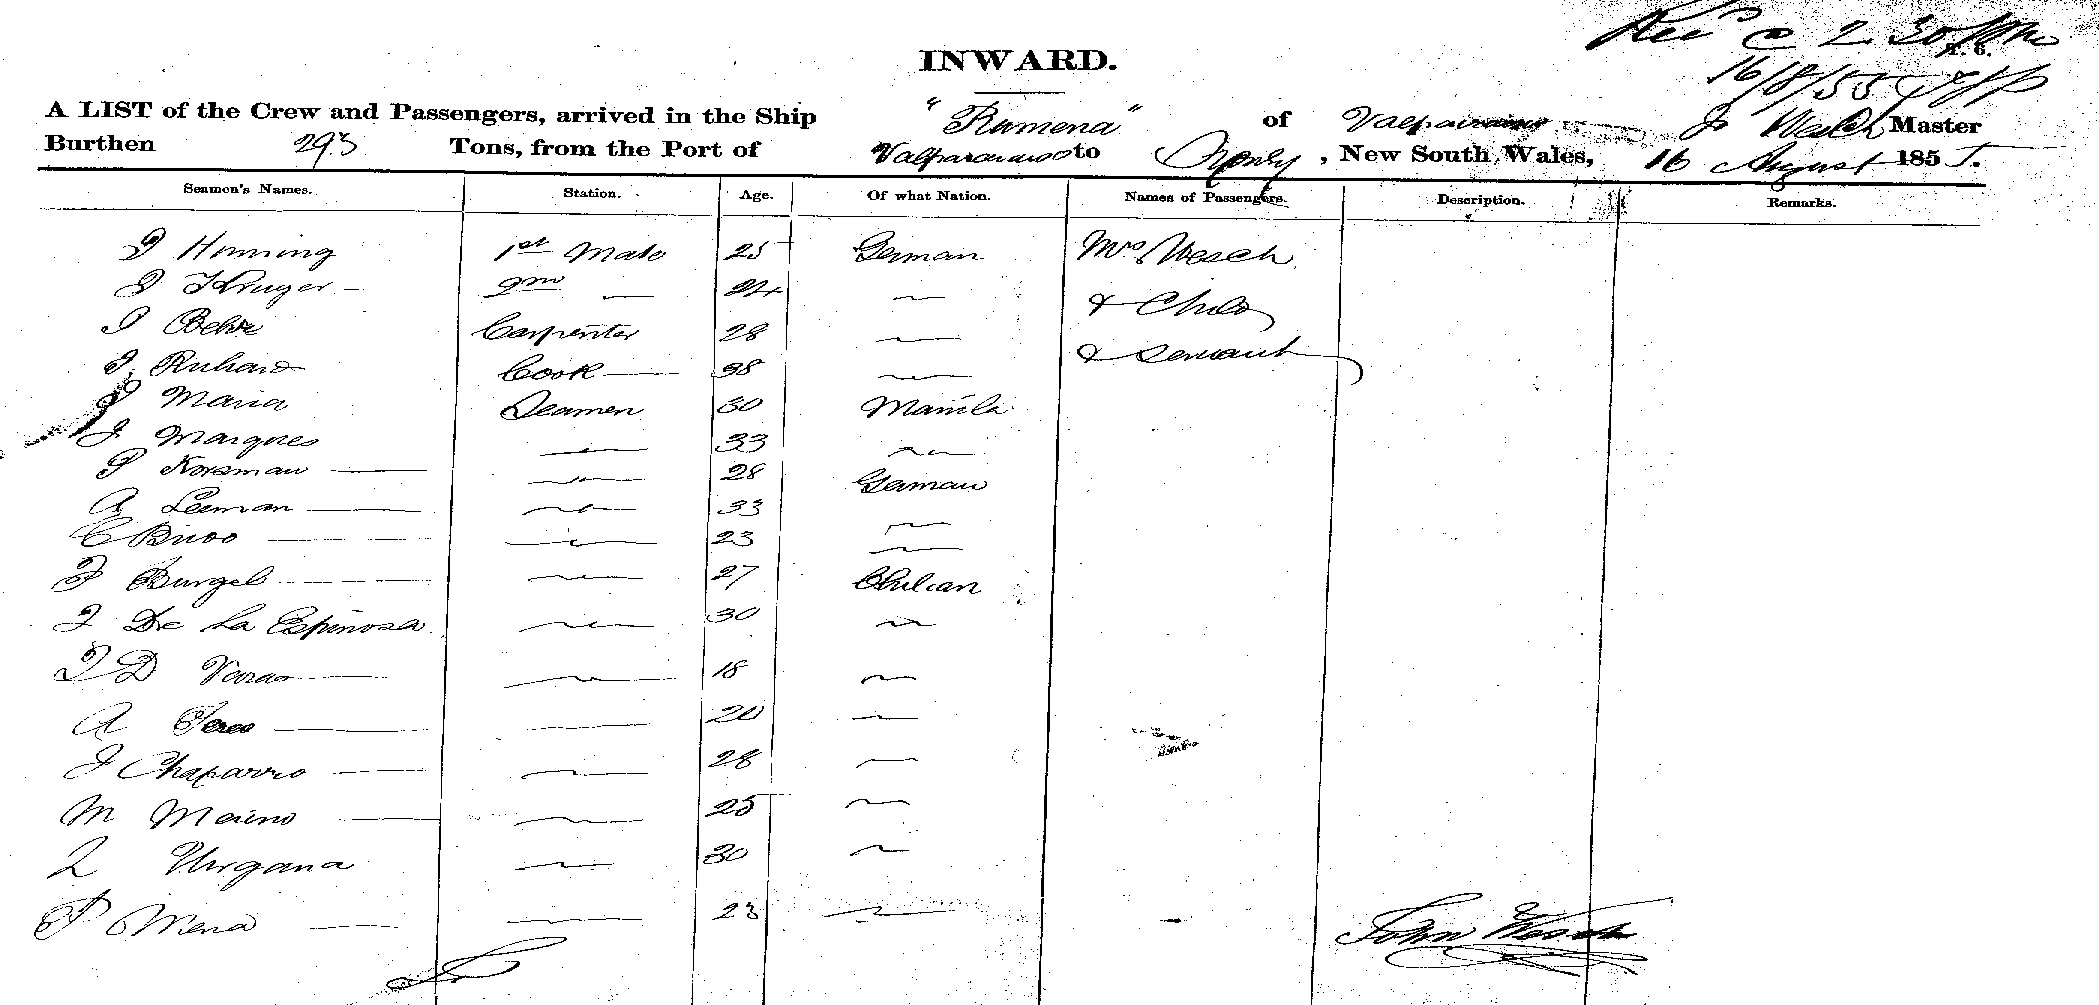 Rec'd @ 2 30 pm
16/8/55
INWARD.
A LIST of the Crew and Passengers, arrived in the Ship "Rumena" of Valparaiso J Wesch Master
Burthen 293 Tons, from the Port of Valparaiso to Sydney, New South Wales, 16 August 1855.
Seamen's Names. Station. Age. Of what Nation. Names of Passengers. Description. Remarks.
J Henning 1st Mate 25 German Mrs Wesch
J Kruger - 2nd — 24 — & Child
J Behr Carpenter 28 — & Servant
J Richard Cook — 38 —
J Maria Seamen 30 Manila
J Marques — 33 —
P Korsman — — 28 German
A Leeman — — 33 —
C Buoo — — 23 —
J Burgel — — 27 Chilian
J De La Espinosa — 30 —
J D Varas — — 18 —
A Perez — — 20 —
J Chaparro — — 28 —
M Moreno — — 25 —
L Vergara — 30 —
P Mena — — 23 —
John Wesch